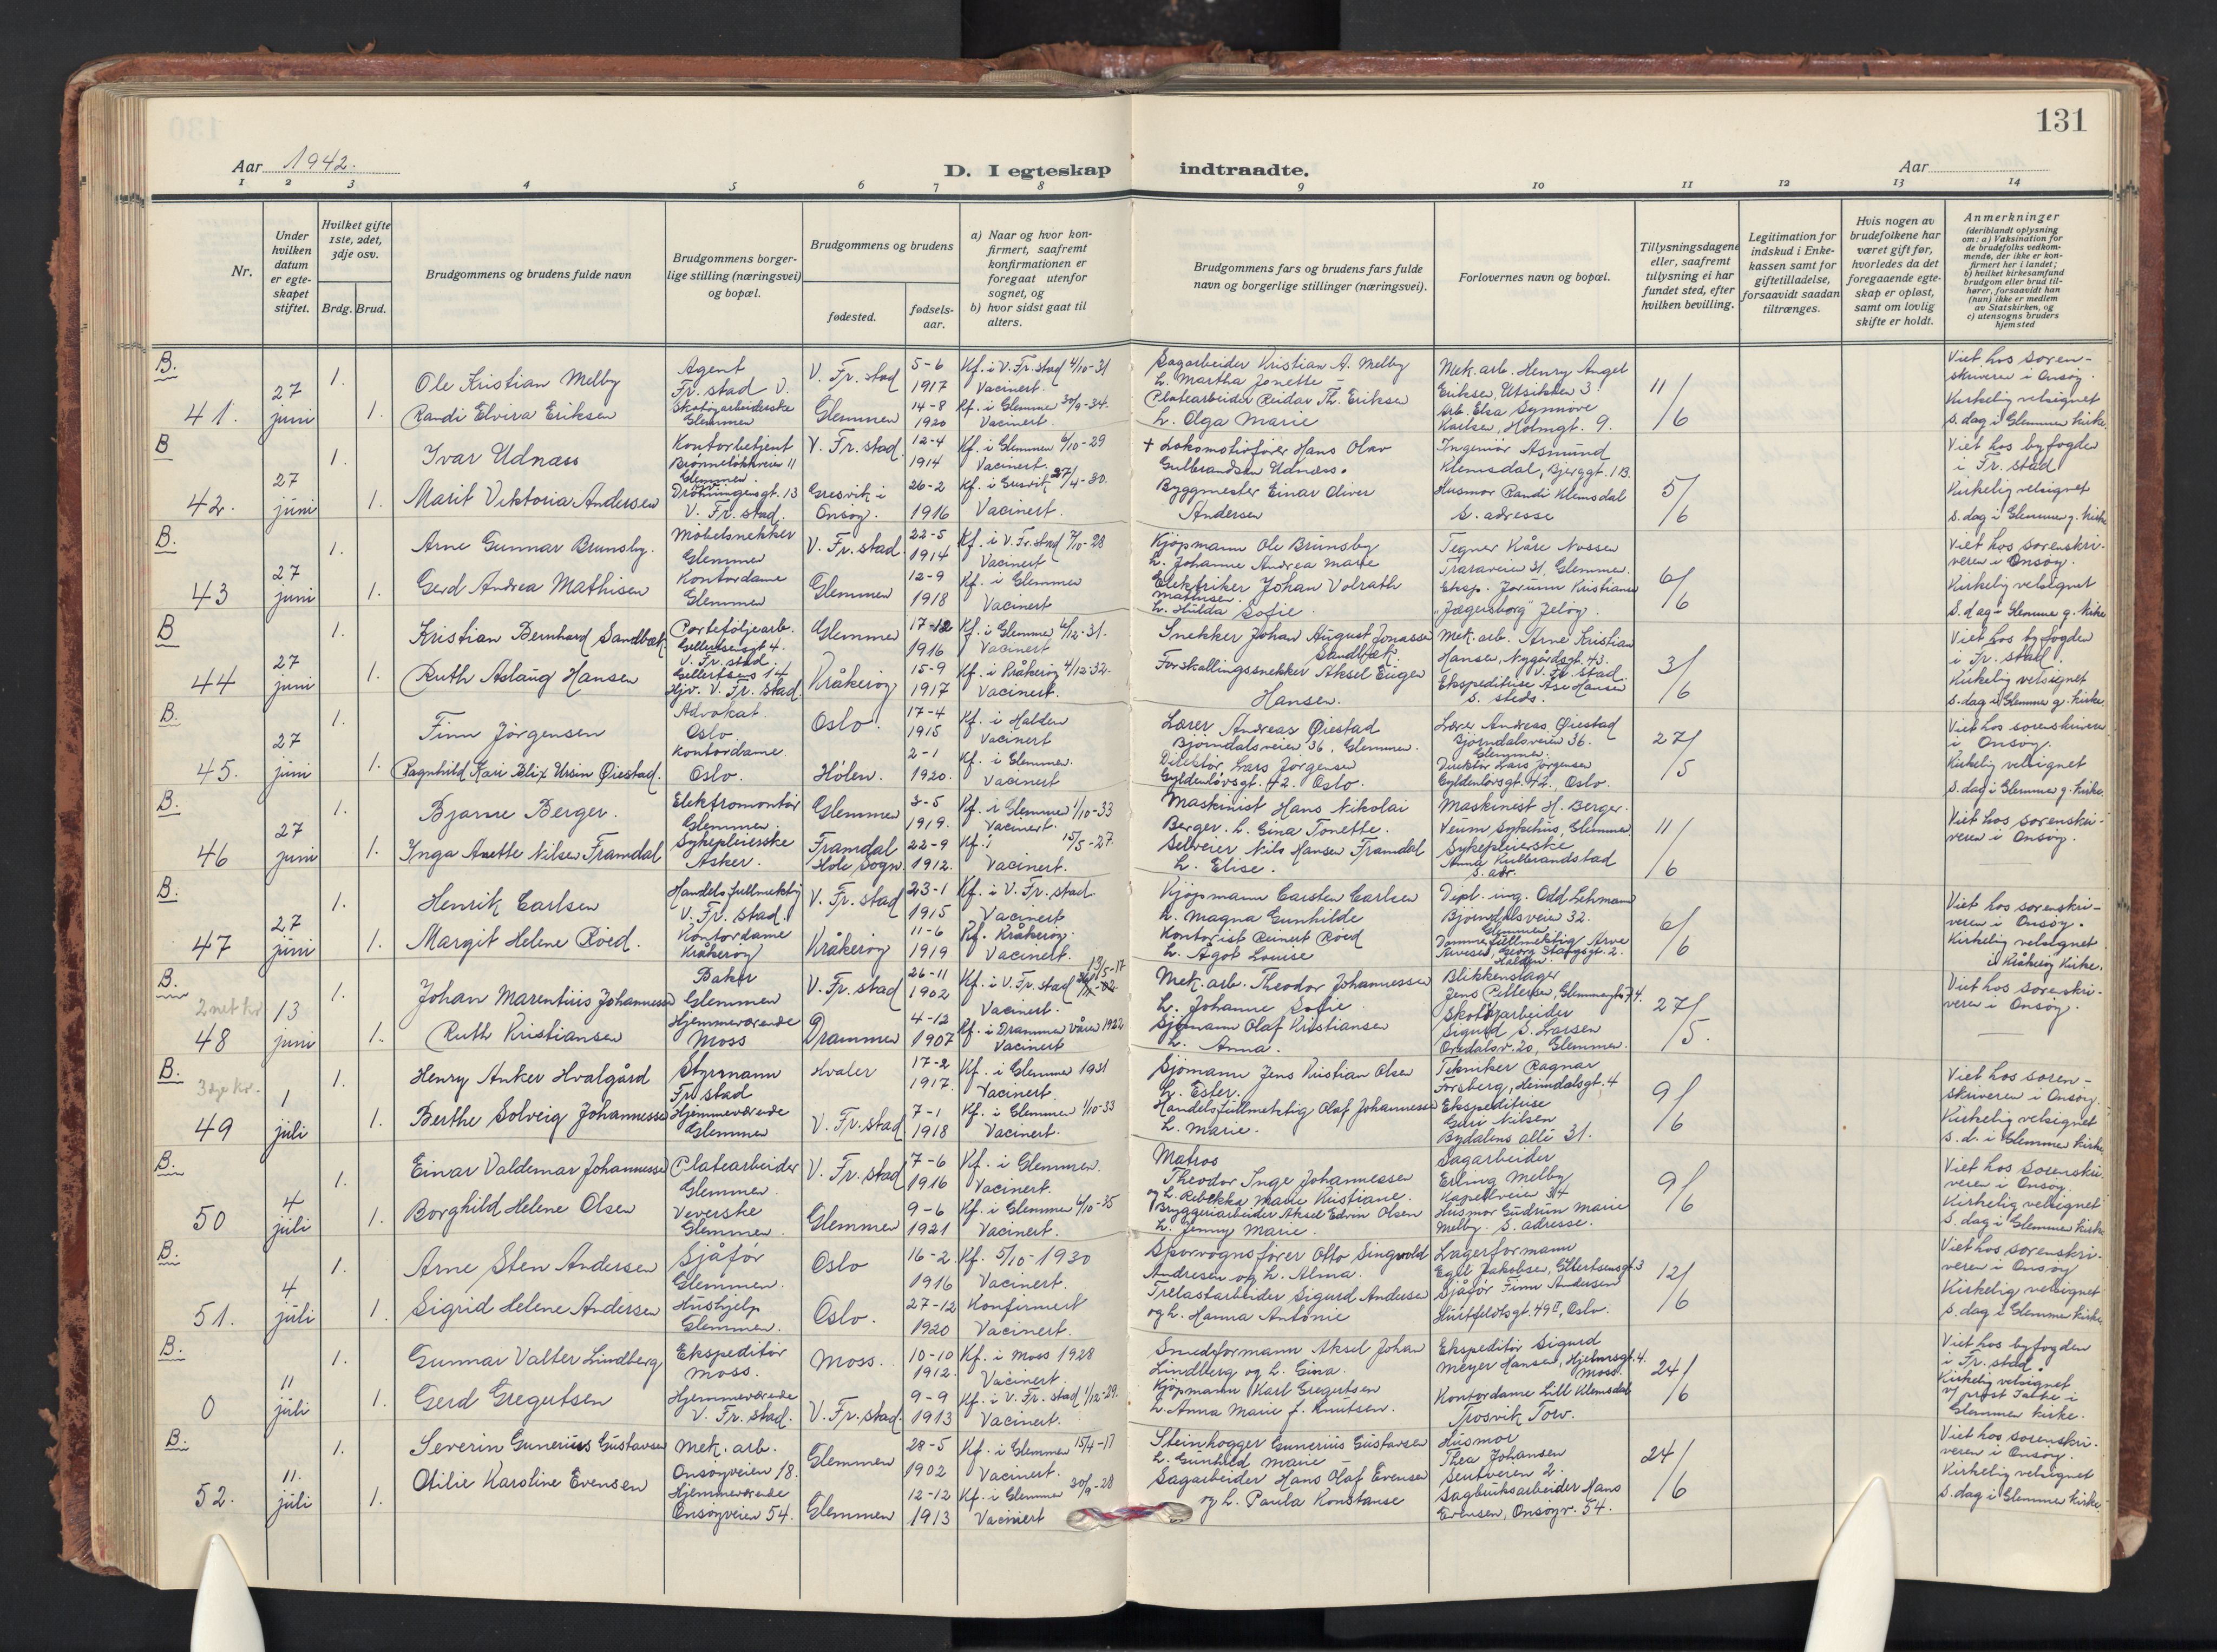 131
Aar 1942.
D. I egteskap indtraadte.
Aar
1 2 3 4 5 6 7 8 9 10 11 12 13 14
Nr.
Under
hvilken
datum
er egte-
skapet
stiftet.
Hvilket gifte
1ste, 2det,
3dje osv.
Brdg. Brud.
Brudgommens og brudens fulde navn
Brudgommens borger-
lige stilling (næringsvei)
og bopæl.
Brudgommens og brudens
fødested.
fødsels-
aar.
a) Naar og hvor kon-
firmert, saafremt
konfirmationen er
foregaat utenfor
sognet, og
b) hvor sidst gaat til
alters.
Brudgommens fars og brudens fars fulde
navn og borgerlige stillinger (næringsvei).
Forlovernes navn og bopæl.
Tillysningsdagene
eller, saafremt
tillysning ei har
fundet sted, efter
hvilken bevilling.
Legitimation for
indskud i Enke-
kassen samt for
giftetilladelse,
forsaavidt saadan
tiltrænges.
Hvis nogen av
brudefolkene har
været gift før,
hvorledes da det
foregaaende egte-
skap er opløst,
samt om lovlig
skifte er holdt.
Anmerkninger
(deriblandt oplysning
om: a) Vaksination for
de brudefolks vedkom-
mende, der ikke er kon-
firmert her i landet;
b) hvilket kirkesamfund
brudgom eller brud til-
hører, forsaavidt han
(hun) ikke er medlem
av Statskirken, og
c) utensogns bruders
hjemsted
B.
41.
27
juni
1.
1.
Ole Kristian Melby
Randi Elvira Eriksen
Agent
Fr.stad V.
Skotøyarbeiderske
Glemmen
V. Fr. stad
Glemmen
5-6
1917
14-8
1920
Kf. i V. Fr. stad 4/10-31
Vacinert.
Kf. i Glemme 30/9-34.
Vacinert.
Sagarbeider Kristian A. Melby
h. Martha Jonette
Platearbeider Reidar Th. Eriksen
h. Olga Marie
Mek. arb. Henry Angel
Eriksen, Utsikten 3.
Arb. Elsa Synnøve
Karlsen, Holmgt. 9.
11/6
Viet hos soren-
skriveren i Onsøy.
Kirkelig velsignet
s. dag i Glemmen kirke.
B
42.
27
juni
1.
1.
Ivar Udnæss
Marit Viktoria Andersen
Kontorbetjent
Brønneløkkveien 11
Glemmen.
Dronningensgt. 13
V. Fr. stad.
V. Fr. stad.
Gresvik i
Onsøy.
12-4
1914
26-2
1916
Kf. i Glemmen 6/10-29
Vacinert.
Kf. i Gresvik 27/4-30.
Vacinert.
+ Lokomotivfører Hans Olav
Gulbrandsen Udnæss.
Byggmester Einar Oliver
Andersen
Ingeniør Asmund
Klemsdal, Bjerggt. 1 B.
Husmor Randi Klemsdal
s. adresse
5/6
Viet hos byfogden
i Fr. stad
Kirkelig velsignet
s. dag i Glemmen g. kirke
B.
43
27
juni
1.
1.
Arne Gunnar Brunsby.
Gerd Andrea Mathisen
Møbelsnekker
Glemmen
Kontordame
Glemmen
V. Fr. stad
Glemmen
22-5
1914
12-9
1918
Kf. i V. Fr. stad 7/10-28
Vacinert
Kf. i Glemmen
Vacinert
Kjøpmann Ole Brunsby
h. Johanne Andrea Marie
Elektriker Johan Volrath
Mathisen.
h. Hulda Sofie.
Tegner Kåre Nossen
Traraveien 31, Glemmen.
Eksp. Jorunn Kristiansen
"Jægersborg" Jeløy.
6/6
Viet hos sorenskri-
veren i Onsøy.
Kirkelig velsignet
s. dag Glemmen g. kirke
B
44
27
juni
1.
1.
Kristian Bernhard Sandbæk
Ruth Aslaug Hansen
Porteføljearb.
Gillertsensgt 4.
V. Fr. stad
Gillertsens 14
Hjv. V. Fr. stad.
Glemmen
Kråkerøy
17-12
1916
15-9
1917
Kf. i Glemme 6/12-31.
Vacinert
Kf. i Kråkerøy 4/12-32.
Vacinert.
Snekker Johan August Jonassen
Sandbæk
Forskallingssnekker Aksel Eugen
Hansen.
Mek. arb. Arne Kristian
Hansen, Nygårdsgt. 43.
V. Fr. stad.
Ekspeditrise Åse Hansen
s. steds.
3/6
Viet hos byfogden
i Fr. stad.
Kirkelig velsignet
s. dag i Glemme g. kirke
B.
45.
27
juni
1.
1.
Finn Jørgensen
Ragnhild Kari Blix Ursin Øiestad.
Advokat.
Oslo.
Kontordame.
Oslo.
Oslo.
Hølen.
17-4
1915
2-1
1920.
Kf. i Halden
Vacinert
Kf. i Glemmen.
Vacinert
Lærer Andreas Øiestad
Bjørndalsveien 36, Glemmen.
Direktør Lars Jørgensen
Gyldenløvsgt. 42. Oslo.
Lærer Andreas Øiestad
Bjørndalsveien 36.
Glemmen.
Direktør Lars Jørgensen
Gyldenløvsgt. 42. Oslo.
27/5
Viet hos sorenskriveren
i Onsøy.
Kirkelig velsignet
s. dag i Glemme g. kirke.
B.
46
27
juni
1.
1.
Bjarne Berger.
Inga Anette Nilsen Framdal
Elektromontør
Glemmen.
Sykepleierske
Asker.
Glemmen
Framdal
Hole sogn.
3-5
1919.
22-9
1912.
Kf. i Glemmen 1/10-33
Vacinert.
Kf. i 15/5-27.
Vacinert.
Maskinist Hans Nikolai
Berger. h. Gina Tonette.
Selveier Nils Hansen Framdal
h. Elise.
Maskinist H. Berger.
Veum sykehus, Glemmen
Sykepleierske
Anna Kulbrandstad
s. adr.
11/6
Viet hos sorenskri-
veren i Onsøy.
B.
47
27
juni
1.
1.
Henrik Carlsen
Margit Helene Røed.
Handelsfullmektig
V. Fr. stad.
Kontordame
Kråkerøy
V. Fr. stad
Kråkerøy
23-1
1915
11-6
1919
Kf. i V. Fr. stad.
Vacinert
Kf. Kråkerøy.
Vacinert.
Kjøpmann Carsten Carlsen
h. Magna Gunhilde
Kontorist Reinert Røed
h. Ågot Louise
Dipl. ing. Odd Lehmann
Bjørndalsveien 32.
Glemmen
Dommerfullmektig Arve
Halden
6/6
Viet hos sorenskri-
veren i Onsøy.
Kirkelig velsignet
i Kråkerøy Kirke.
B.
2 net kr
48
13
juni
1.
1.
Johan Marentius Johannessen
Ruth Kristiansen
Baker
Glemmen
Hjemmeværende
Moss
V. Fr. stad
Drammen
26-11
1902
4-12
1907
13/5-17
Kf. i V. Fr. stad
Vacinert.
Kf. i Drammen våren 1922
Vacinert
Mek. arb. Theodor Johannessen
h. Johanne Sofie
Sjømann Olaf Kristiansen
h. Anna.
Blikkenslager
Jens Pettersen, Glemmengt. 74.
Skotøyarbeider
Sigurd S. Larsen
Oredalsv. 20, Glemmen.
27/5.
Viet hos sorenskri-
veren i Onsøy.
B.
3 dje kr.
49
1
juli
1.
1.
Henry Anker Hvalgård
Berthe Solveig Johannessen
Styrmann
Fr. stad
Hjemmeværende
Glemmen
Hvaler
V. Fr. stad
17-2
1917.
7-1
1918
Kf. i Glemmen 1931
Vacinert.
Kf. i Glemmen 1/10-33
Vacinert.
Sjømann Jens Kristian Olsen
h. Ester.
Handelsfullmektig Olaf Johannessen
h. Marie.
Tekniker Ragnar
Forsberg, Heimdalsgt. 4
Ekspeditrise
Guri Nilsen
Bydalens allé 31.
9/6
Viet hos soren-
skriveren i Onsøy.
Kirkelig velsignet
s. d. i Glemmen kirke
B.
50
4
juli
1.
1.
Einar Valdemar Johannessen
Borghild Helene Olsen
Platearbeider
Glemmen.
Veverske
Glemmen.
V. Fr. stad
Glemmen
7-6
1916
9-6
1921
Kf. i Glemmen.
Vacinert.
Kf. i Glemmen 6/10-35
Vacinert.
Matros
Theodor Inge Johannessen
og h. Rebekka Marie Kristiane.
Bryggeriarbeider Aksel Edvin Olsen
h. Jenny Marie.
Sagarbeider
Erling Melby
Kapellveien 34
Husmor Gudrun Marie
Melby. s. adresse.
9/6
Viet hos sorenskri-
veren i Onsøy.
Kirkelig velsignet
s. dag i Glemmen kirke
B.
51.
4
juli
1.
1.
Arne Sten Andersen
Sigrid Helene Andersen
Sjåfør
Glemmen.
Hushjelp
Glemmen.
Oslo
Oslo.
16-2
1916
27-12
1920
Kf. 5/10-1930
Vacinert.
Konfirmert
Vacinert.
Sporvognsfører Otto Singvold
Andresen og h. Alma.
Trelastarbeider Sigurd Andersen
og h. Hanna Antonie
Lagerformann
Egil Jakobsen, Gillertsensgt. 3
Sjåfør Finn Andersen
Hertfeldtsgt. 49 II, Oslo.
12/6
Viet hos sorenskri-
veren i Onsøy
Kirkelig velsignet
s. dag i Glemmen kirke
B.
0
11
juli
1.
1.
Gunnar Valter Lindberg
Gerd Gregertsen
Ekspeditør
Moss.
Hjemmeværende
V. Fr. stad.
Moss.
V. Fr. stad.
10-10
1912.
9-9
1913
Kf. i Moss 1928
Vacinert.
Kf. i V. Fr. stad 1/12-29.
Vacinert.
Smedformann Aksel Johan
Lindberg og h. Gina.
Kjøpmann Karl Gregertsen
h. Anna Marie f. Knutsen.
Ekspeditør Sigurd
Meyer Hansen, Hjelmsgt. 4.
Moss.
Kontordame Lill Klemsdal
Trosvik Torv.
24/6
Viet hos byfogden
i Fr. stad.
Kirkelig velsignet
v/ prost Takle i
Glemmen kirke.
B.
52.
11.
juli
1.
1.
Severin Gunerius Gustavsen
Otilie Karoline Evensen
Mek. arb.
Onsøyveien 18.
Hjemmeværende
Onsøyveien 54.
Glemmen
Glemmen
28-5
1902
12-12
1913
Kf. i Glemmen 15/4-17
Vacinert.
Kf. i Glemmen 30/9-28
Vacinert
Steinhogger Gunerius Gustavsen
h. Gunhild Marie
Sagarbeider Hans Olaf Evensen
og h. Paula Konstanse
Husmor
Thea Johansen
2.
Sagbruksarbeider Hans
Evensen, Onsøyv. 54.
24/6
Viet hos sorenskri-
veren i Onsøy.
Kirkelig velsignet
s. dag i Glemmen kirke.